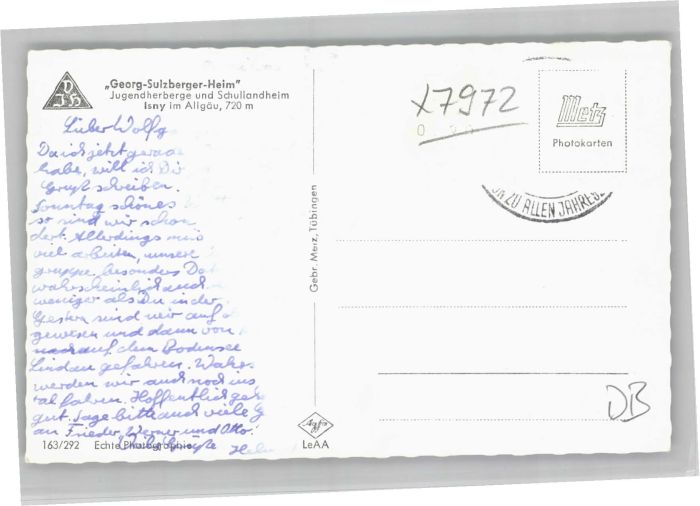 DJH
„Georg-Sulzberger-Heim"
Jugendherberge und Schullandheim
Isny im Allgäu, 720 m
Lieber Wolfg
Da ich jetzt gerade
habe, will ich Dir
Gruß schreiben.
Sonntag schönes
so sind wir schon
dert. Allerdings müs
viel arbeiten, unsere
gruppe besonders. Dat
wahrscheinlich auch
weniger als Du in der
Gestern sind wir auf
gewesen und dann von
nach auf dem Bodensee
Lindau gefahren. Wahrs
werden wir auch noch ins
tal fahren. Hoffentlich geht
gut. Sage bitte auch viele G
an Frieder, Werner und Otto.
Viele Grüße
163/292 Echte Photographie
Gebr. Metz, Tübingen
Agfa
LeAA
x7972
Metz
Photokarten
ZU ALLEN JAHRES
DB